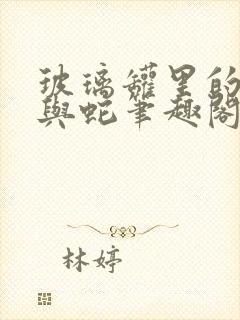 玻璃罐里的
與蛇笔趣阁
林婷